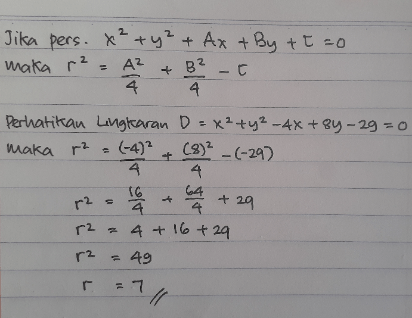 Jika pers. x² + y² + Ax + By + C = 0
maka r² = A²/4 + B²/4 - C
Perhatikan Lingkaran D = x² + y² - 4x + 8y - 29 = 0
maka r² = (-4)²/4 + (8)²/4 - (-29)
r² = 16/4 + 64/4 + 29
r² = 4 + 16 + 29
r² = 49
r = 7 //